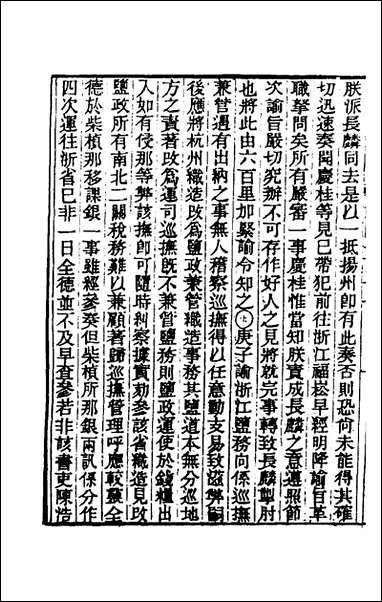 朕派長麟同去是以一抵揚州卽有此奏否則恐尙未能得其確
切迅速奏聞慶桂等見已帶犯前往浙江福崧早經明降諭旨革
職拏問矣所有嚴審一事慶桂惟當知朕責成長麟之意遵照節
次諭旨嚴切究辦不可存作好人之見將就完事轉致長麟掣肘
也將此由六百里加緊諭令知之○庚子諭浙江鹽務向係巡撫
兼管遇有出納之事無人稽察巡撫得以任意動支易致滋弊嗣
後應將杭州織造改爲鹽政兼管織造事務其鹽道本無分巡地
方之責著改爲運司巡撫旣不兼管鹽務則鹽政運使於錢糧出
入如有侵那等弊該撫卽可隨時糾察據實劾參該省織造見改
鹽政所有南北二關稅務難以兼顧著歸巡撫管理呼應較靈全
德於柴楨那移課銀一事雖經參奏但柴楨所那銀兩訊係分作
四次運往浙省已非一日全德並不及早查參若非該書吏陳浩